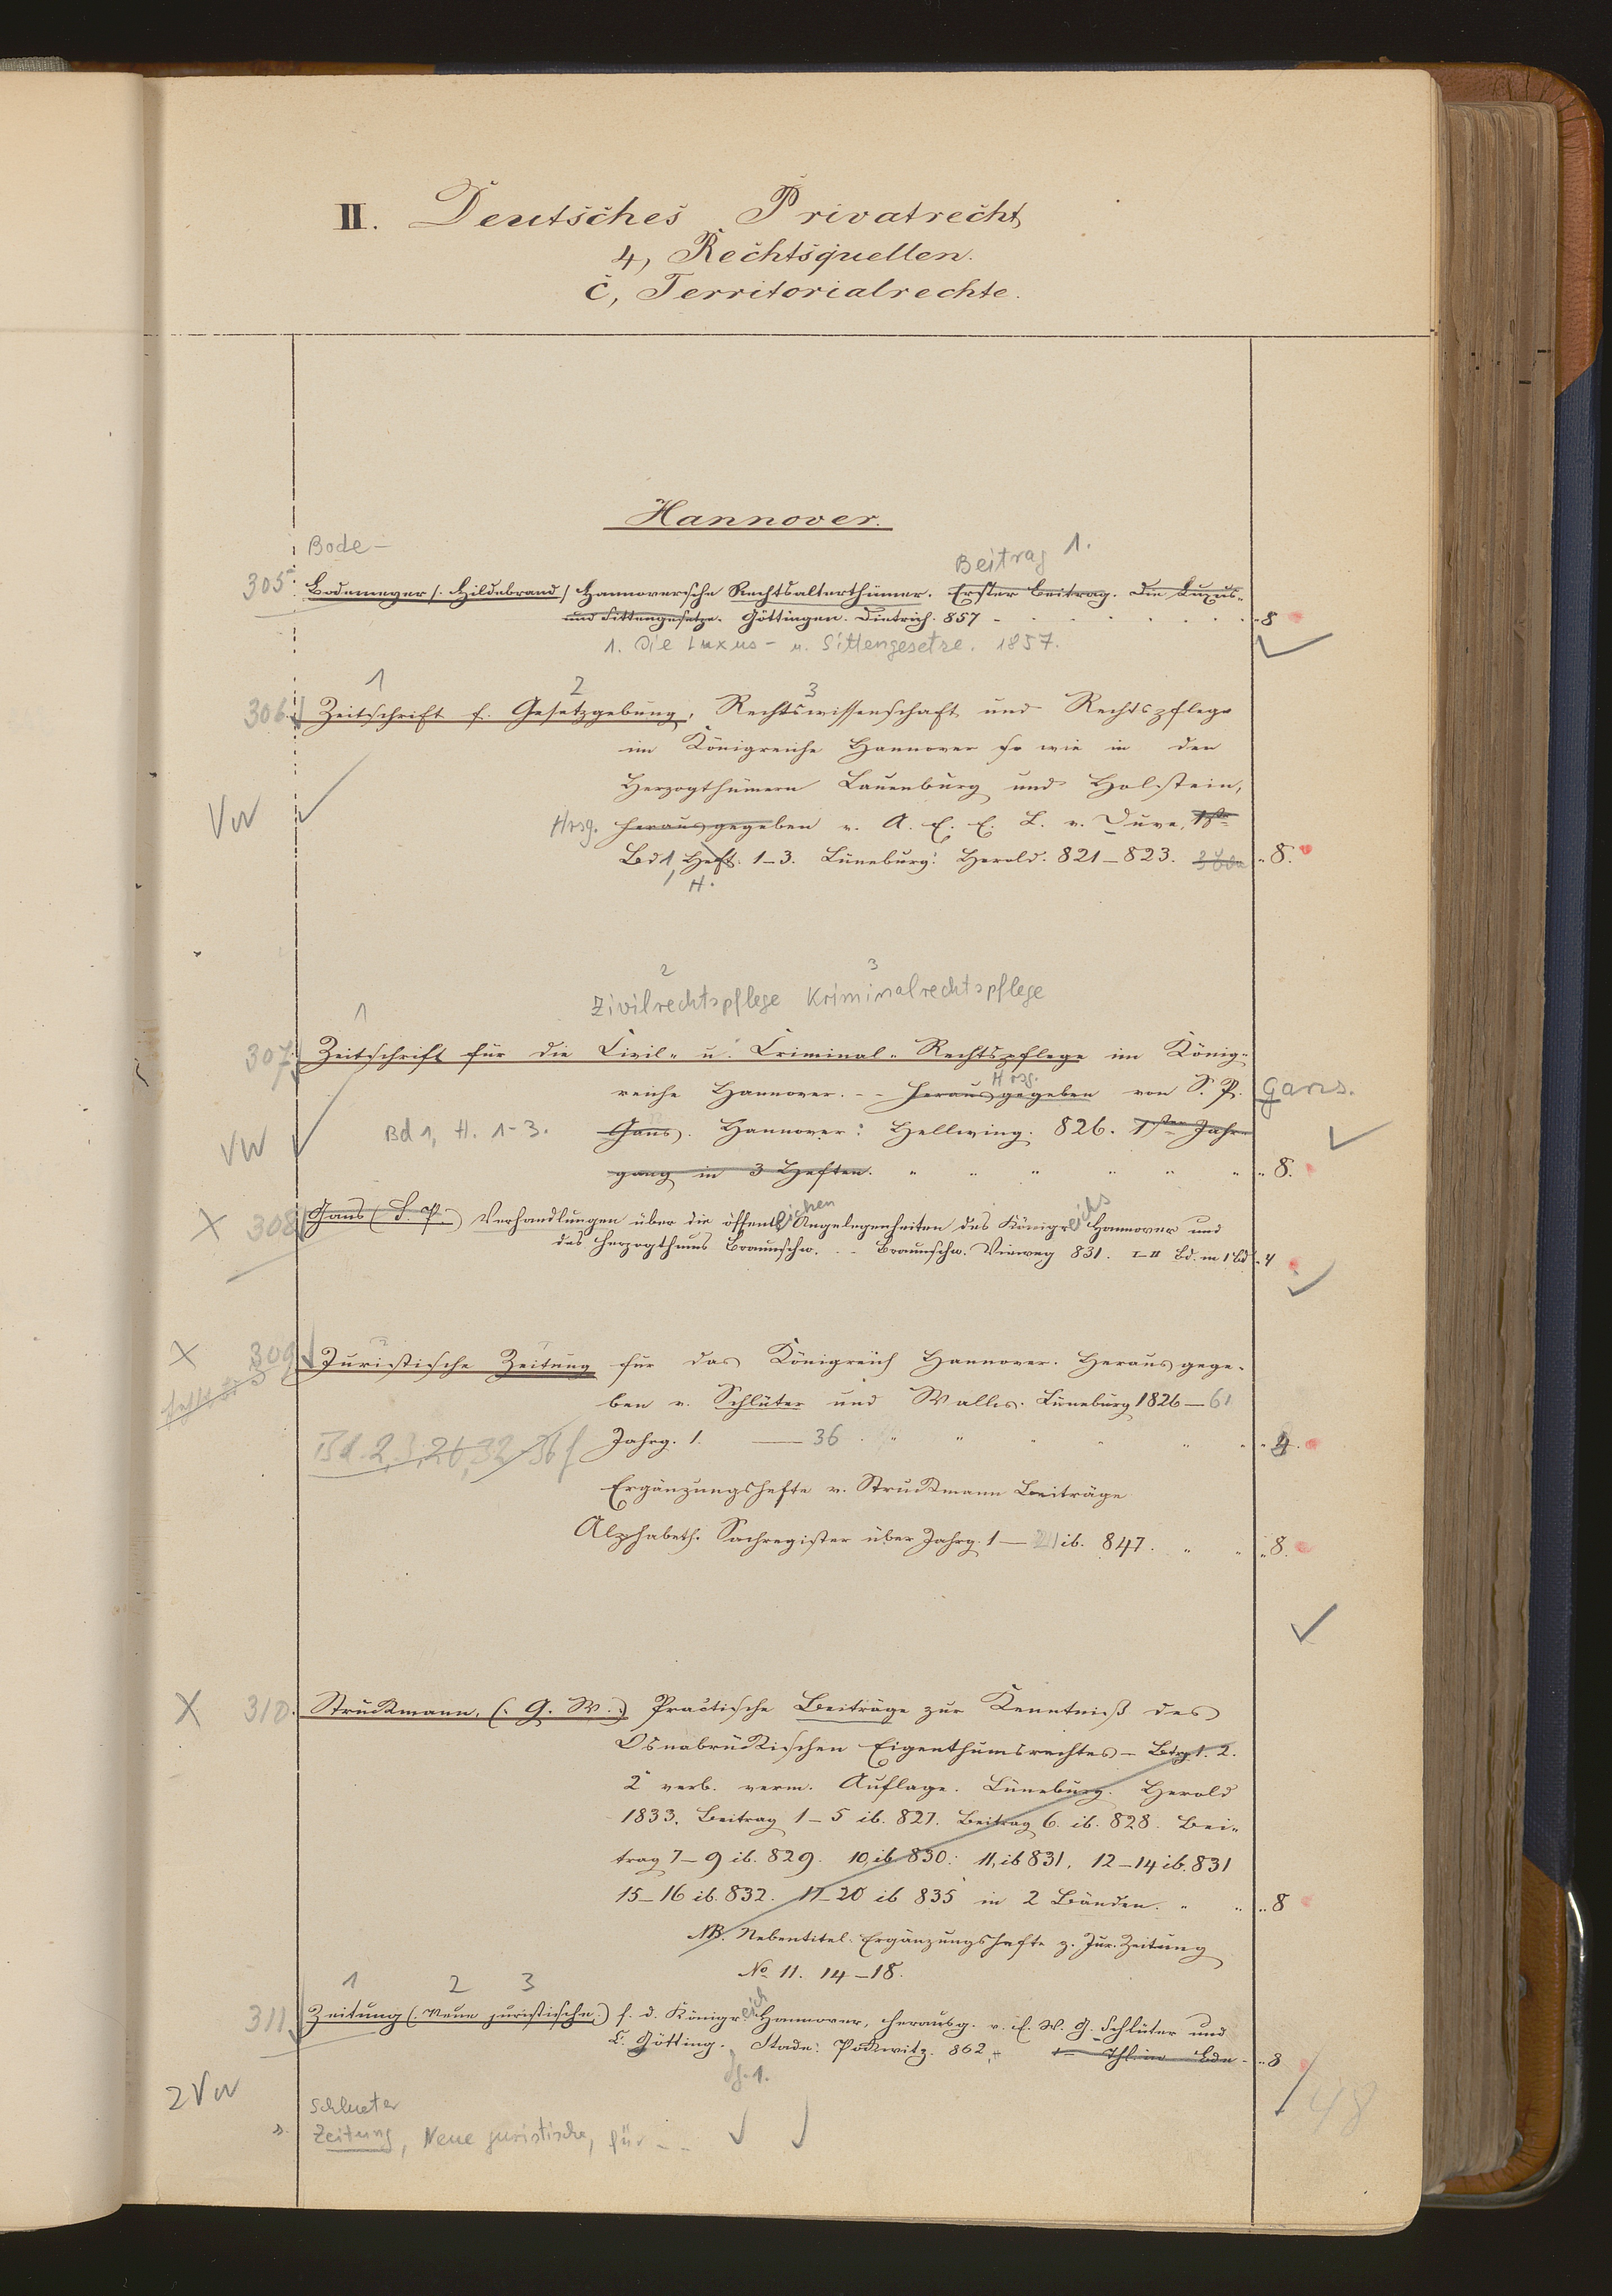 II. Deutsches Privatrecht
4, Rechtsquellen.
c, Territorialrechte.
Hannover.
Bode -
Beitrag 1.
305. Bodemeyer /. Hildebrand / Hannoversche Rechtsalterthümer. Erster Beitrag. Die Luxus-
und Sittengesetze. Göttingen. Dietrich. 857 - 8
1. Die Luxus- u. Sittengesetze. 1857.
1 2 3
306. Zeitschrift f. Gesetzgebung, Rechtswissenschaft und Rechtspflege
im Königreiche Hannover so wie in den
Herzogthümern Lauenburg und Holstein,
VW Hrsg. herausgegeben v. A. E. E. L. v. Duve, 1ste
Bd 1, Heft. 1-3. Lüneburg: Herold. 821-823. 8.
H.
2 3
Zivilrechtspflege Kriminalrechtspflege
1
307. Zeitschrift für die Civil- u. Criminal-Rechtspflege im König-
Hrsg.
reiche Hannover. - - herausgegeben von S. P. Gans.
VW Bd 1, H. 1-3. Gans). Hannover: Hellwing. 826. 1ster Jahr-
gang in 3 Heften. 8.
X 308. Gans (S. P.) Verhandlungen über die öffentlichen Angelegenheiten des Königreichs Hannover und
des Herzogthums Braunschw. - - Braunschw. Vieweg 831. I-II Bd. in 1 Bd 4
X 309. Juristische Zeitung für das Königreich Hannover. Herausgege-
ben v. Schlüter und Wallis. Lüneburg 1826-61
Bd. 2, 3, 26, 32-36 f Jahrg. 1. — 36. 4.
Ergänzungshefte v. Struckmann Beiträge
Alphabeth. Sachregister über Jahrg. 1- 21 ib. 847. 8.
X 310. Struckmann, (. G. W.) Practische Beiträge zur Kenntniß des
Osnabrückischen Eigenthumsrechtes - Btrg 1. 2.
2e verb. verm. Auflage. Lüneburg. Herold
1833. Beitrag 1-5 ib. 827. Beitrag 6. ib. 828. Bei-
trag 7-9 ib. 829. 10, ib 830: 11, ib 831, 12-14 ib. 831
15-16 ib. 832. 17-20 ib 835 in 2 Bänden. 8
NB. Nebentitel: Ergänzungshefte z. Jur. Zeitung
No 11. 14-18.
1 2 3
311. Zeitung (. Neue juristische.) f. d. Königreich Hannover, herausg. v. E. W. G. Schlüter und
L. Götting. Stade: Pockwitz. 862, 8
Jg. 1.
2 VW
Schlueter
s. Zeitung, Neue juristische, für - -
48